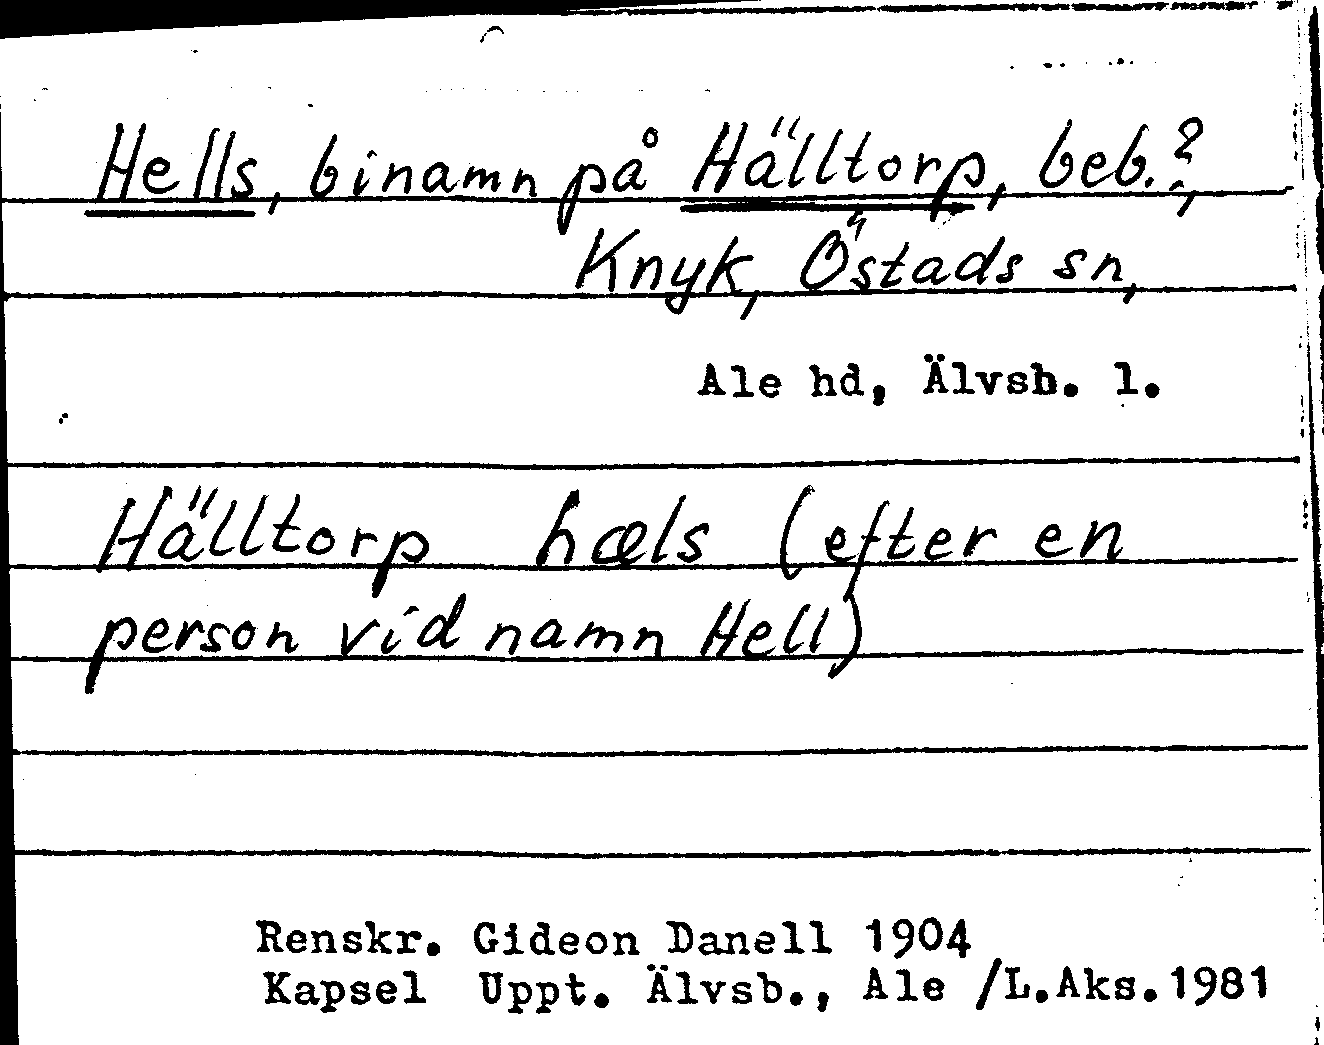 Hells, binamn på Hälltorp, beb.?,
Knyk, Östads sn,
Ale hd, Älvsb. l.
Hälltorp hæls (efter en
person vid namn Hell)
Renskr. Gideon Danell 1904
Kapsel Uppt. Älvsb., Ale /L.Aks.1981